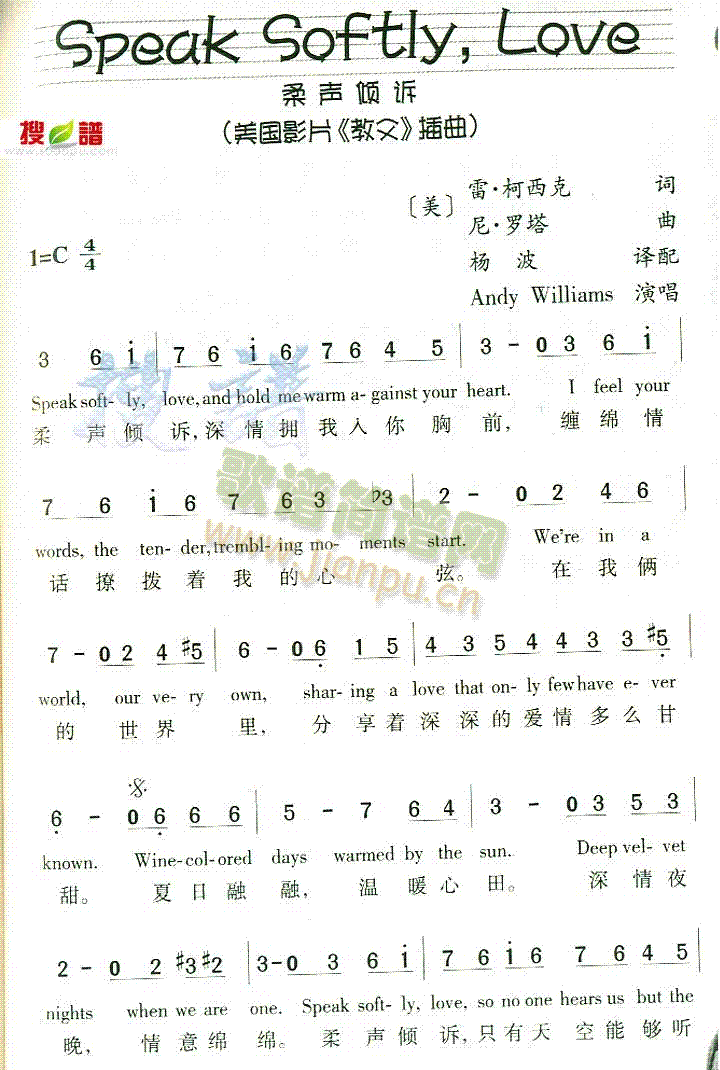 Speak Softly, Love
柔声倾诉
(美国影片《教父》插曲)
搜 谱
〔美〕 雷·柯西克 词
尼·罗塔 曲
1=C 4/4
杨 波 译配
Andy Williams 演唱
3 6 i | 7 6 i 6 7 6 4 5 | 3 - 0 3 6 i
Speak soft- ly, love, and hold me warm a- gainst your heart. I feel your
柔 声 倾 诉, 深 情 拥 我 入 你 胸 前, 缠 绵 情
7 6 i 6 7 6 3 ♭3 | 2 - 0 2 4 6
words, the ten- der, trembl- ing mo- ments start. We're in a
话 撩 拨 着 我 的 心 弦。 在 我 俩
歌谱简谱网
www.jianpu.cn
7 - 0 2 4 #5 | 6 - 0 6 1 5 | 4 3 5 4 4 3 3 #5
world, our ve- ry own, shar- ing a love that on- ly few have e- ver
的 世 界 里, 分 享 着 深 深 的 爱 情 多 么 甘
6 - 0 6 6 6 | 5 - 7 6 4 | 3 - 0 3 5 3
known. Wine-col-ored days warmed by the sun. Deep vel- vet
甜。 夏 日 融 融, 温 暖 心 田。 深 情 夜
2 - 0 2 #3 #2 | 3 - 0 3 6 i | 7 6 i 6 7 6 4 5
nights when we are one. Speak soft- ly, love, so no one hears us but the
晚, 情 意 绵 绵。 柔 声 倾 诉, 只 有 天 空 能 够 听